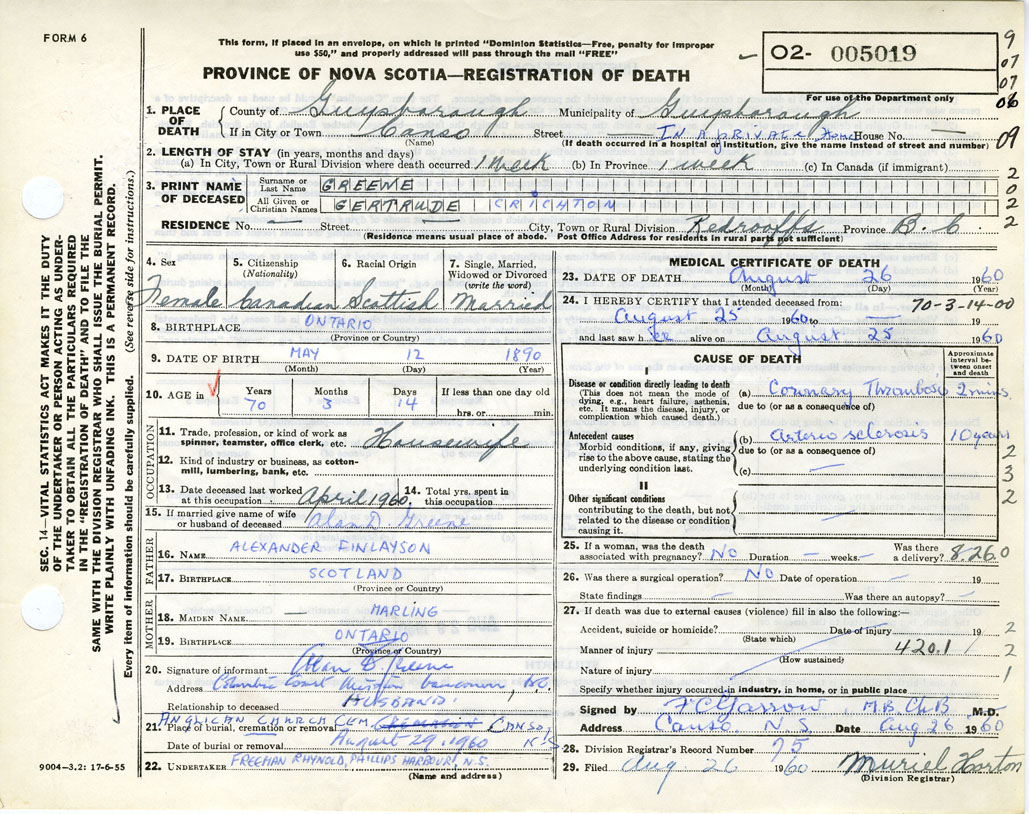 FORM 6
This form, if placed in an envelope, on which is printed "Dominion Statistics—Free, penalty for improper
use $50," and properly addressed will pass through the mail "FREE"
O2- 005019
9
07
07
06
For use of the Department only
PROVINCE OF NOVA SCOTIA—REGISTRATION OF DEATH
1. PLACE OF DEATH
County of Guysborough Municipality of Guysborough
If in City or Town Canso Street — In a private Home House No. —
(Name) (If death occurred in a hospital or institution, give the name instead of street and number)
09
2. LENGTH OF STAY (in years, months and days)
(a) In City, Town or Rural Division where death occurred 1 week (b) In Province 1 week (c) In Canada (if immigrant)
3. PRINT NAME OF DECEASED
Surname or Last Name GREENE
All Given or Christian Names GERTRUDE CRICHTON
2
0
2
2
RESIDENCE No. — Street — City, Town or Rural Division Redrooffs Province B.C
(Residence means usual place of abode. Post Office Address for residents in rural parts not sufficient)
4. Sex 5. Citizenship 6. Racial Origin 7. Single, Married,
(Nationality) Widowed or Divorced
(write the word)
Female Canadian Scottish Married
8. BIRTHPLACE ONTARIO
(Province or Country)
9. DATE OF BIRTH MAY 12 1890
(Month) (Day) (Year)
10. AGE in Years Months Days If less than one day old
70 3 14 hrs. or min.
OCCUPATION
11. Trade, profession, or kind of work as
spinner, teamster, office clerk, etc. Housewife
12. Kind of industry or business, as cotton-
mill, lumbering, bank, etc.
13. Date deceased last worked at this occupation April 1960 14. Total yrs. spent in this occupation
15. If married give name of wife
or husband of deceased Alan D. Greene
FATHER
16. NAME ALEXANDER FINLAYSON
17. BIRTHPLACE SCOTLAND
(Province or Country)
MOTHER
18. MAIDEN NAME — MARLING
19. BIRTHPLACE ONTARIO
(Province or Country)
20. Signature of informant Alan D. Greene
Address Columbia Coast Mission Vancouver, BC.
Relationship to deceased HUSBAND
21. Place of burial, cremation or removal ANGLICAN CHURCH CEM. CANSO,
Date of burial or removal August 29, 1960 N.S
22. UNDERTAKER FREEMAN RHYNOLD, PHILLIPS HARBOUR, N.S.
(Name and address)
MEDICAL CERTIFICATE OF DEATH
23. DATE OF DEATH August 26 1960
(Month) (Day) (Year)
24. I HEREBY CERTIFY that I attended deceased from: 70-3-14-00
August 25 1960 to — 19
and last saw her alive on August 25 1960
CAUSE OF DEATH
Approximate interval between onset and death
I
Disease or condition directly leading to death
(This does not mean the mode of
dying, e.g., heart failure, asthenia,
etc. It means the disease, injury, or
complication which caused death.)
(a) Coronary Thrombosis 2 mins.
due to (or as a consequence of)
Antecedent causes
Morbid conditions, if any, giving
rise to the above cause, stating the
underlying condition last.
(b) arterio sclerosis 10 years
due to (or as a consequence of)
(c) —
2
3
2
II
Other significant conditions
contributing to the death, but not
related to the disease or condition
causing it.
—
25. If a woman, was the death
associated with pregnancy? NO Duration — weeks. — Was there a delivery? 8.26.0
26. Was there a surgical operation? NO Date of operation — 19
State findings — Was there an autopsy? —
27. If death was due to external causes (violence) fill in also the following:—
Accident, suicide or homicide? Date of injury 19 2
(State which)
Manner of injury 420.1 2
(How sustained)
Nature of injury 1
Specify whether injury occurred in industry, in home, or in public place
Signed by F C Garrow M.B. Ch.B. M.D.
Address Canso N.S. Date Aug 26 1960
28. Division Registrar's Record Number 75
29. Filed Aug 26 1960 Muriel Horton
(Division Registrar)
SEC. 14—VITAL STATISTICS ACT MAKES IT THE DUTY
OF THE UNDERTAKER OR PERSON ACTING AS UNDER-
TAKER TO OBTAIN ALL THE PARTICULARS REQUIRED
IN THE "REGISTRATION OF DEATH" AND TO FILE THE
SAME WITH THE DIVISION REGISTRAR WHO SHALL ISSUE THE BURIAL PERMIT.
WRITE PLAINLY WITH UNFADING INK. THIS IS A PERMANENT RECORD.
Every item of information should be carefully supplied. (See reverse side for instructions.)
9004—3.2: 17-6-55